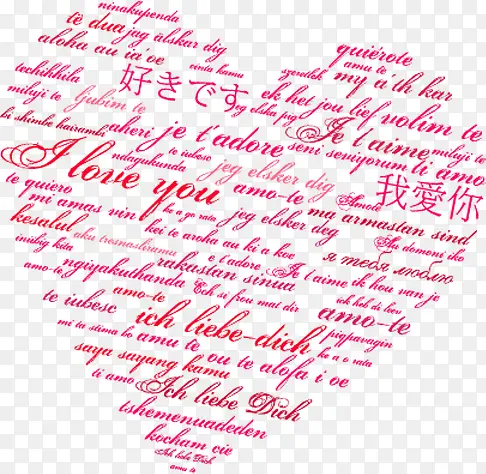 ninakupenda
të dua jag älskar dig
aloha au ia'oe
quiérote
amu te
techihhila
cinta kamu
szeretlek
my a'th kar
miluji te
ljubim te
好きです
eg elska þig
ek het jou lief
volim te
bi shimbe hairambi
aheri
je t'adore
Je t'aime
miluji te
ndagukunda
te iubesc
seni seviyorum
ti amo
I love you
jeg elsker dig
te quiero
amo-te
我愛你
mi amas vin
ke a go rata
jeg elsker deg
ma armastan sind
kesalul
aku tresnasliramu
kei te aroha au ki a koe
Au domoni iko
inibig kita
rakastan sinua
e t'adore
я тебя люблю
amo-te
ngiyakuthanda
Ech si frou mat dir
Je t'aime
ik hou van je
te iubesc
amo-te
ich liebe-dich
amo-te
mi ta stima bo
amu te
piapavagin
saya sayang kamu
ou te alofa i oe
ke a o rata
ti amo
Ich liebe Dich
tshemenuadeden
kocham cie
Ich liebe Dich
amu te